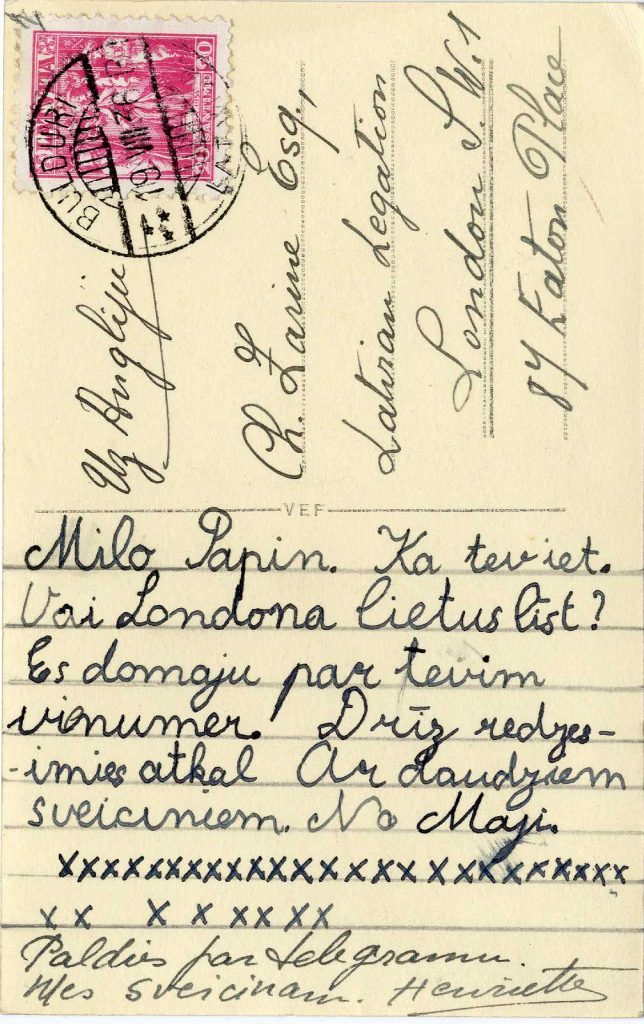 BULDURI
19 VIII 36
Uz Angliju
Ch. Zarine Esq,
Latvian Legation
London S.W.1
87 Eaton Place
VEF
Milo Papin. Ka tev iet.
Vai Londona lietus līst?
Es domaju par tevim
vienumer. Drīz redzes-
-imies atkal Ar daudziem
sveiciniem. No Maji.
xxxxxxxxxxxxxxxxxxxxxxxxxxx
xx x x xx xx
Paldies par telegramu.
Mes sveicinam. Henriette